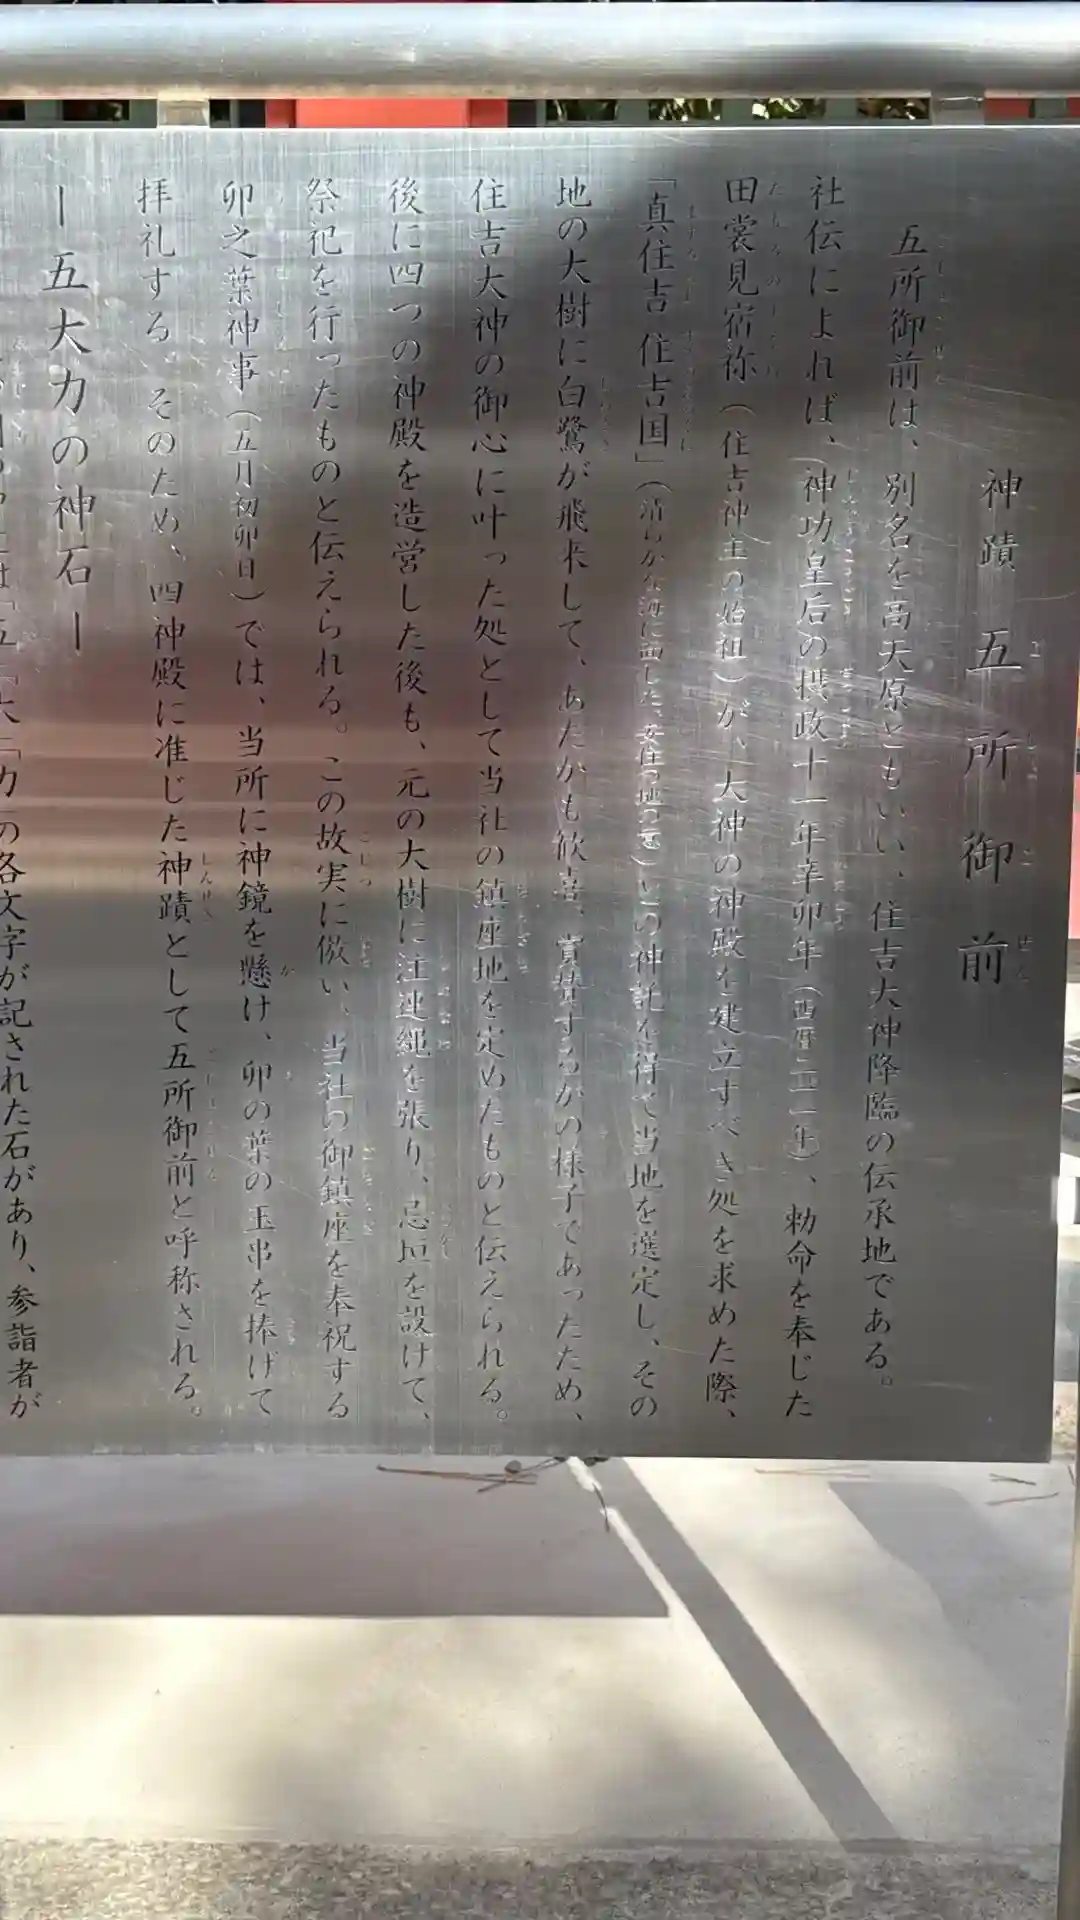 神蹟 五所御前
五所御前は、別名を高天原ともいい、住吉大神降臨の伝承地である。
社伝によれば、神功皇后の摂政十一年辛卯年（西暦二一一年）、勅命を奉じた
田裳見宿祢（住吉神主の始祖）が、大神の神殿を建立すべき処を求めた際、
「真住吉 住吉国」（清らかな海に面した、安住の地の意）との神託を得て当地を選定し、その
地の大樹に白鷺が飛来して、あたかも歓喜、賞賛するかの様子であったため、
住吉大神の御心に叶った処として当社の鎮座地を定めたものと伝えられる。
後に四つの神殿を造営した後も、元の大樹に注連縄を張り、忌垣を設けて、
祭祀を行ったものと伝えられる。この故実に倣い、当社の御鎮座を奉祝する
卯之葉神事（五月初卯日）では、当所に神鏡を懸け、卯の葉の玉串を捧げて
拝礼する。そのため、四神殿に准じた神蹟として五所御前と呼称される。
ー五大力の神石ー
は「五」「大」「力」の各文字が記された石があり、参詣者が